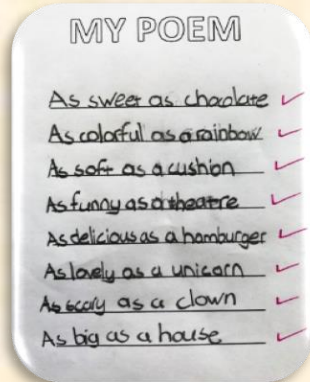 MY POEM
As sweet as chocolate
As colorful as a rainbow
As soft as a cushion
As funny as a theatre
As delicious as a hamburger
As lovely as a unicorn
As scary as a clown
As big as a house